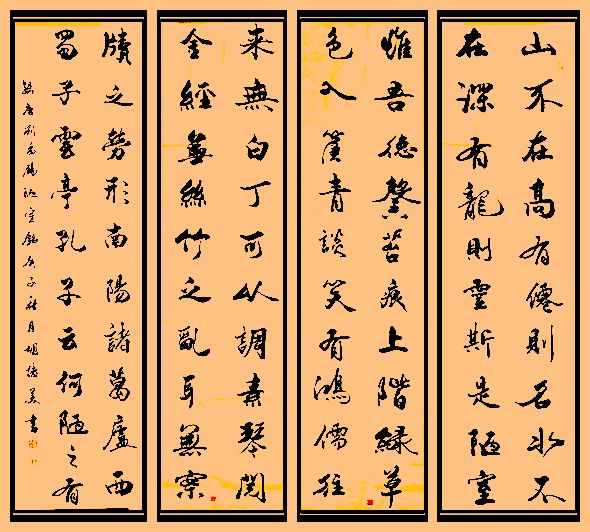 山不在高有僊則名水不
在深有龍則靈斯是陋室
惟吾德馨苔痕上階緑草
色入簾青談笑有鴻儒往
来無白丁可以調素琴閲
金經無絲竹之亂耳無案
牘之勞形南陽諸葛廬西
蜀子雲亭孔子云何陋之有
錄唐劉禹錫陋室銘庚子秋月胡德美書